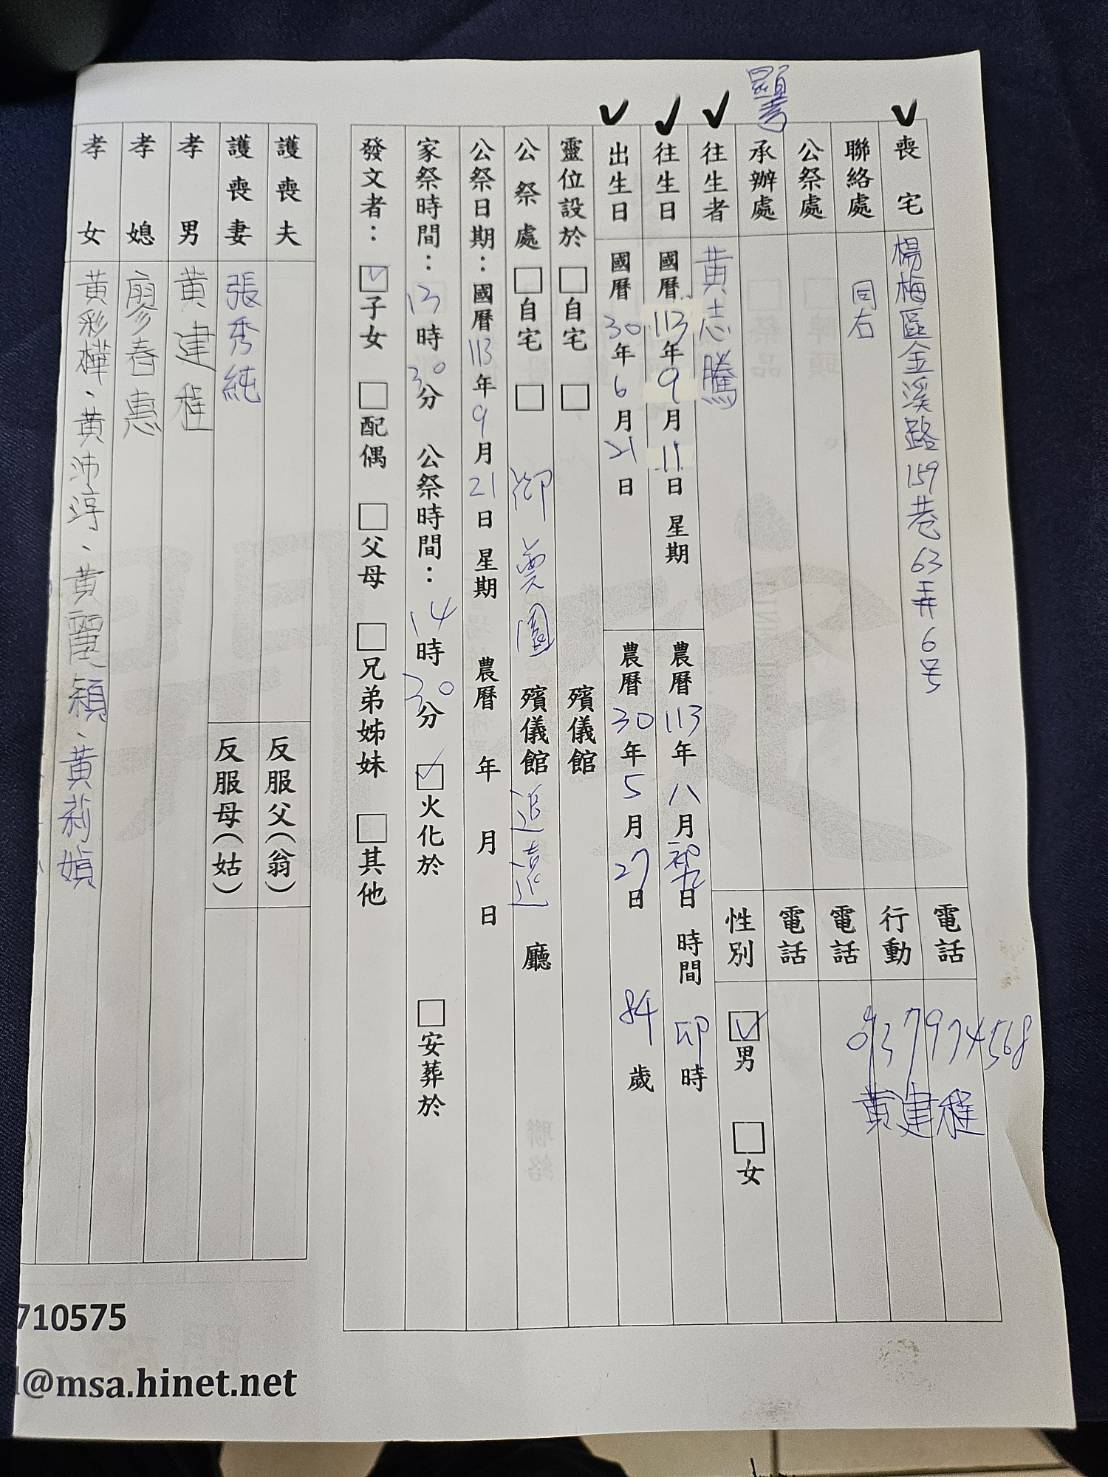 顯考
喪宅 楊梅區金溪路159巷63弄6号 電話
聯絡處 同右 行動 0937974568 黃建程
公祭處 電話
承辦處 電話
往生者 黃志騰 性別 男 女
往生日 國曆113年9月11日 星期 農曆113年八月初九日 時間 卯時
出生日 國曆30年6月21日 農曆30年5月27日 84歲
靈位設於 自宅 殯儀館
公祭處 自宅 御奠園 殯儀館 追遠廳
公祭日期：國曆113年9月21日 星期 農曆 年 月 日
家祭時間：13時30分 公祭時間：14時30分 火化於 安葬於
發文者： 子女 配偶 父母 兄弟姊妹 其他
護喪夫 反服父（翁）
護喪妻 張秀純 反服母（姑）
孝男 黃建程
孝媳 廖春惠
孝女 黃彩樺、黃沛淳、黃麗穎、黃莉媜
710575
@msa.hinet.net